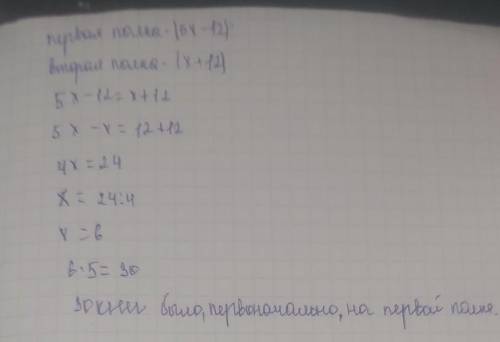 первая полка - (5х-12)
вторая полка - (х+12)
5х-12=х+12
5х-х=12+12
4х=24
х=24:4
х=6
6·5=30
30 книг было, первоначально, на первой полке.